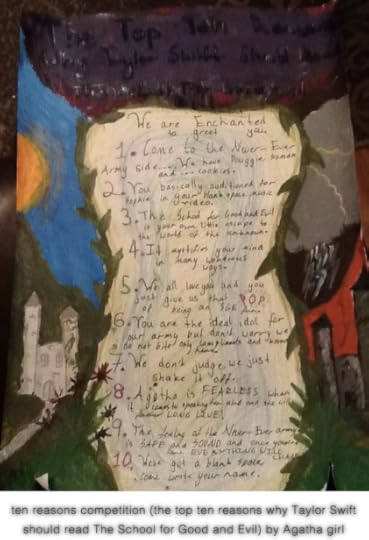 The Top Ten Reasons
Why Taylor Swift Should Read
We are Enchanted
to greet you
1. Come to the Never-Ever
Army side... We have Dougie, human
and ... cookies.
2. You basically auditioned for
Sophie in your blank space music
video.
3. The School for Good and Evil
is your own little escape to
the world of the unknown.
4. It mystifies your mind
in many wondrous
ways.
5. We all love you and you
just give us that POP
of being an SGE fan.
6. You are the ideal idol for
our army but don't worry we
do not bite only compliments and
7. We don't judge we just
shake it off.
8. Agatha is FEARLESS when
it comes to speaking her mind and
LONG LIVE!
9. The of the Never-Ever army
is SAFE and SOUND and once you
EVERYTHING WILL
10. We've got a blank space
come write your name.
ten reasons competition (the top ten reasons why Taylor Swift
should read The School for Good and Evil) by Agatha girl